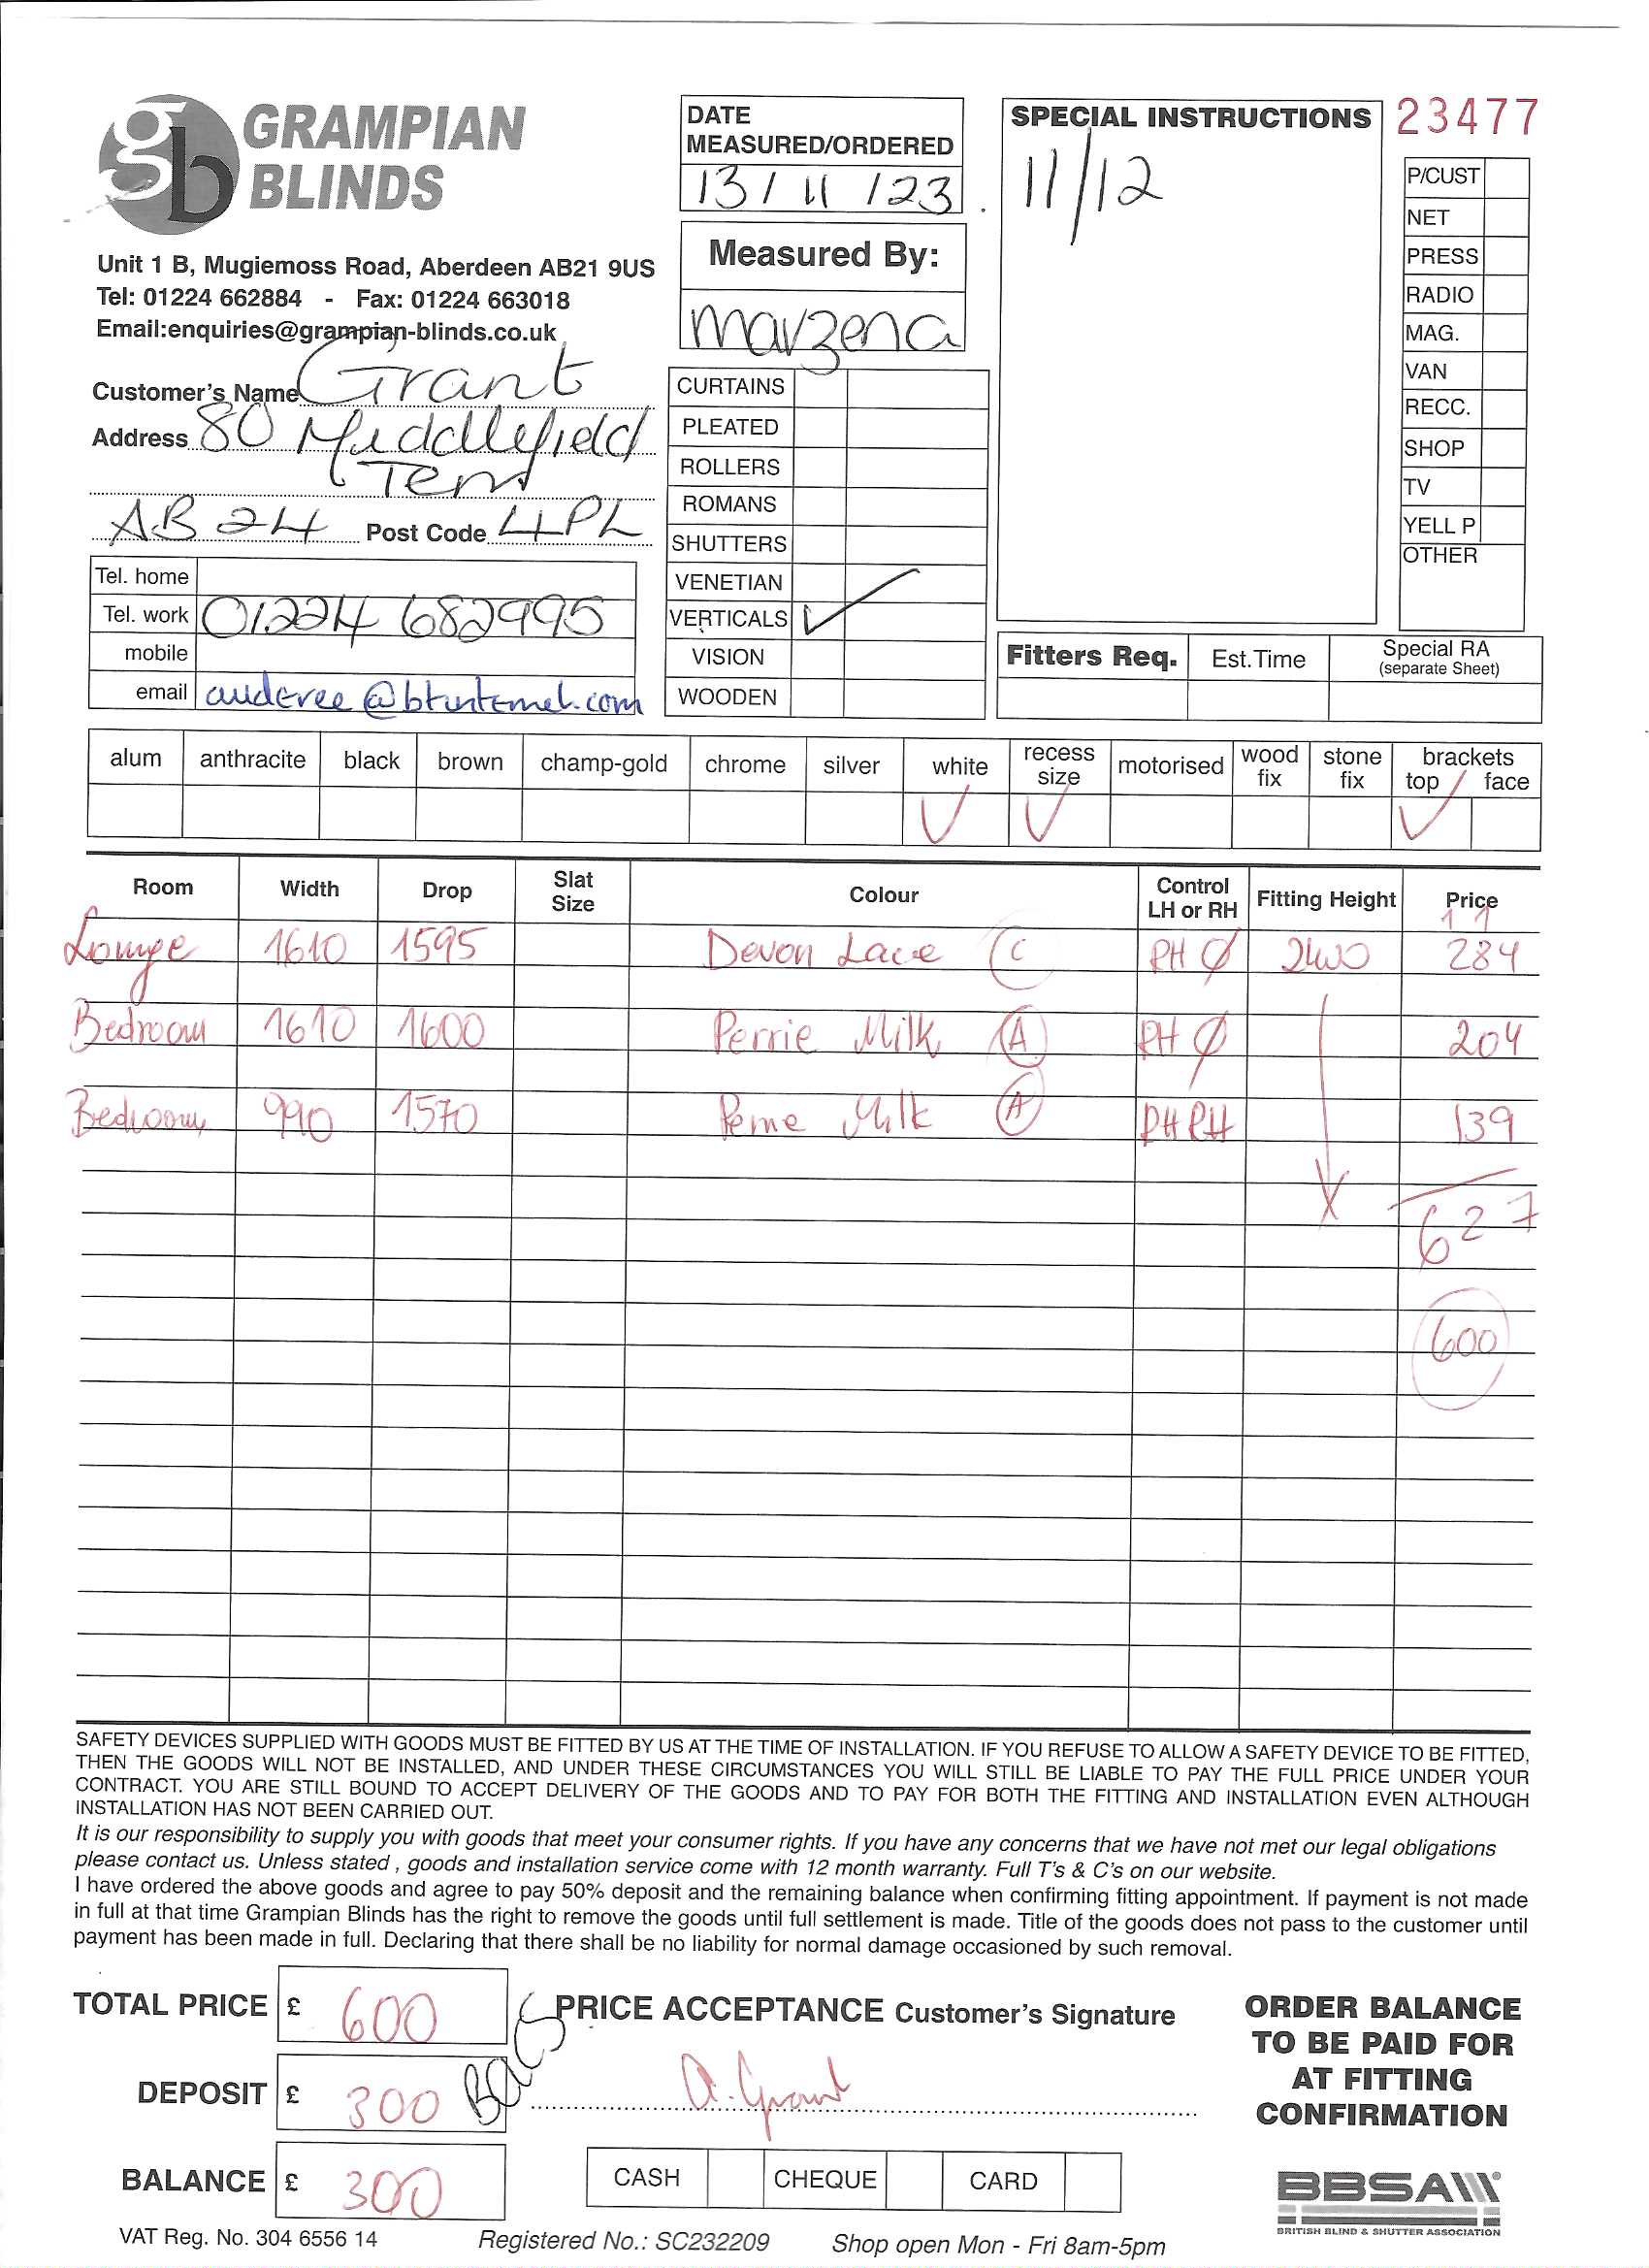 GRAMPIAN
BLINDS
Unit 1 B, Mugiemoss Road, Aberdeen AB21 9US
Tel: 01224 662884 - Fax: 01224 663018
Email:enquiries@grampian-blinds.co.uk
DATE
MEASURED/ORDERED
13 / 11 / 23
Measured By:
Marzena
SPECIAL INSTRUCTIONS
11/12
23477
P/CUST
NET
PRESS
RADIO
MAG.
VAN
RECC.
SHOP
TV
YELL P
OTHER
Customer's Name Grant
Address 80 Middlefield
AB24 Post Code 4PL
Tel. home
Tel. work 01224 682995
mobile
email @btinternet.com
CURTAINS
PLEATED
ROLLERS
ROMANS
SHUTTERS
VENETIAN
VERTICALS ✓
VISION
WOODEN
Fitters Req. Est.Time Special RA
(separate Sheet)
alum anthracite black brown champ-gold chrome silver white recess size motorised wood fix stone fix brackets top face
✓ ✓ ✓
Room Width Drop Slat Size Colour Control LH or RH Fitting Height Price
1 1
Lounge 1610 1595 Devon Lace C RH Ø 2400 284
Bedroom 1610 1600 Perrie Milk A RH Ø 204
Bedroom 990 1570 Perrie Milk A RH RH 139
627
600
SAFETY DEVICES SUPPLIED WITH GOODS MUST BE FITTED BY US AT THE TIME OF INSTALLATION. IF YOU REFUSE TO ALLOW A SAFETY DEVICE TO BE FITTED,
THEN THE GOODS WILL NOT BE INSTALLED, AND UNDER THESE CIRCUMSTANCES YOU WILL STILL BE LIABLE TO PAY THE FULL PRICE UNDER YOUR
CONTRACT. YOU ARE STILL BOUND TO ACCEPT DELIVERY OF THE GOODS AND TO PAY FOR BOTH THE FITTING AND INSTALLATION EVEN ALTHOUGH
INSTALLATION HAS NOT BEEN CARRIED OUT.
It is our responsibility to supply you with goods that meet your consumer rights. If you have any concerns that we have not met our legal obligations
please contact us. Unless stated , goods and installation service come with 12 month warranty. Full T's & C's on our website.
I have ordered the above goods and agree to pay 50% deposit and the remaining balance when confirming fitting appointment. If payment is not made
in full at that time Grampian Blinds has the right to remove the goods until full settlement is made. Title of the goods does not pass to the customer until
payment has been made in full. Declaring that there shall be no liability for normal damage occasioned by such removal.
TOTAL PRICE £ 600
DEPOSIT £ 300 BACS
BALANCE £ 300
PRICE ACCEPTANCE Customer's Signature
A. Grant
CASH CHEQUE CARD
ORDER BALANCE
TO BE PAID FOR
AT FITTING
CONFIRMATION
BBSA
BRITISH BLIND & SHUTTER ASSOCIATION
VAT Reg. No. 304 6556 14 Registered No.: SC232209 Shop open Mon - Fri 8am-5pm